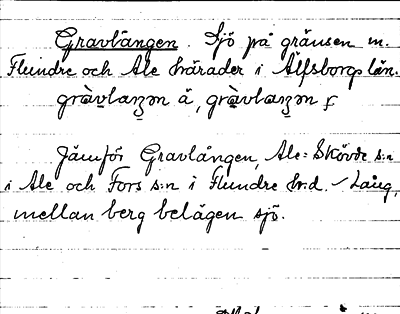 Gravlången. Sjö på gränsen m.
Flundre och Ale härader i Älfsborgs län.
Jämför Gravlången, Ale-Skövde s:n
i Ale och Fors s:n i Flundre h:d. Lång,
mellan berg belägen sjö.